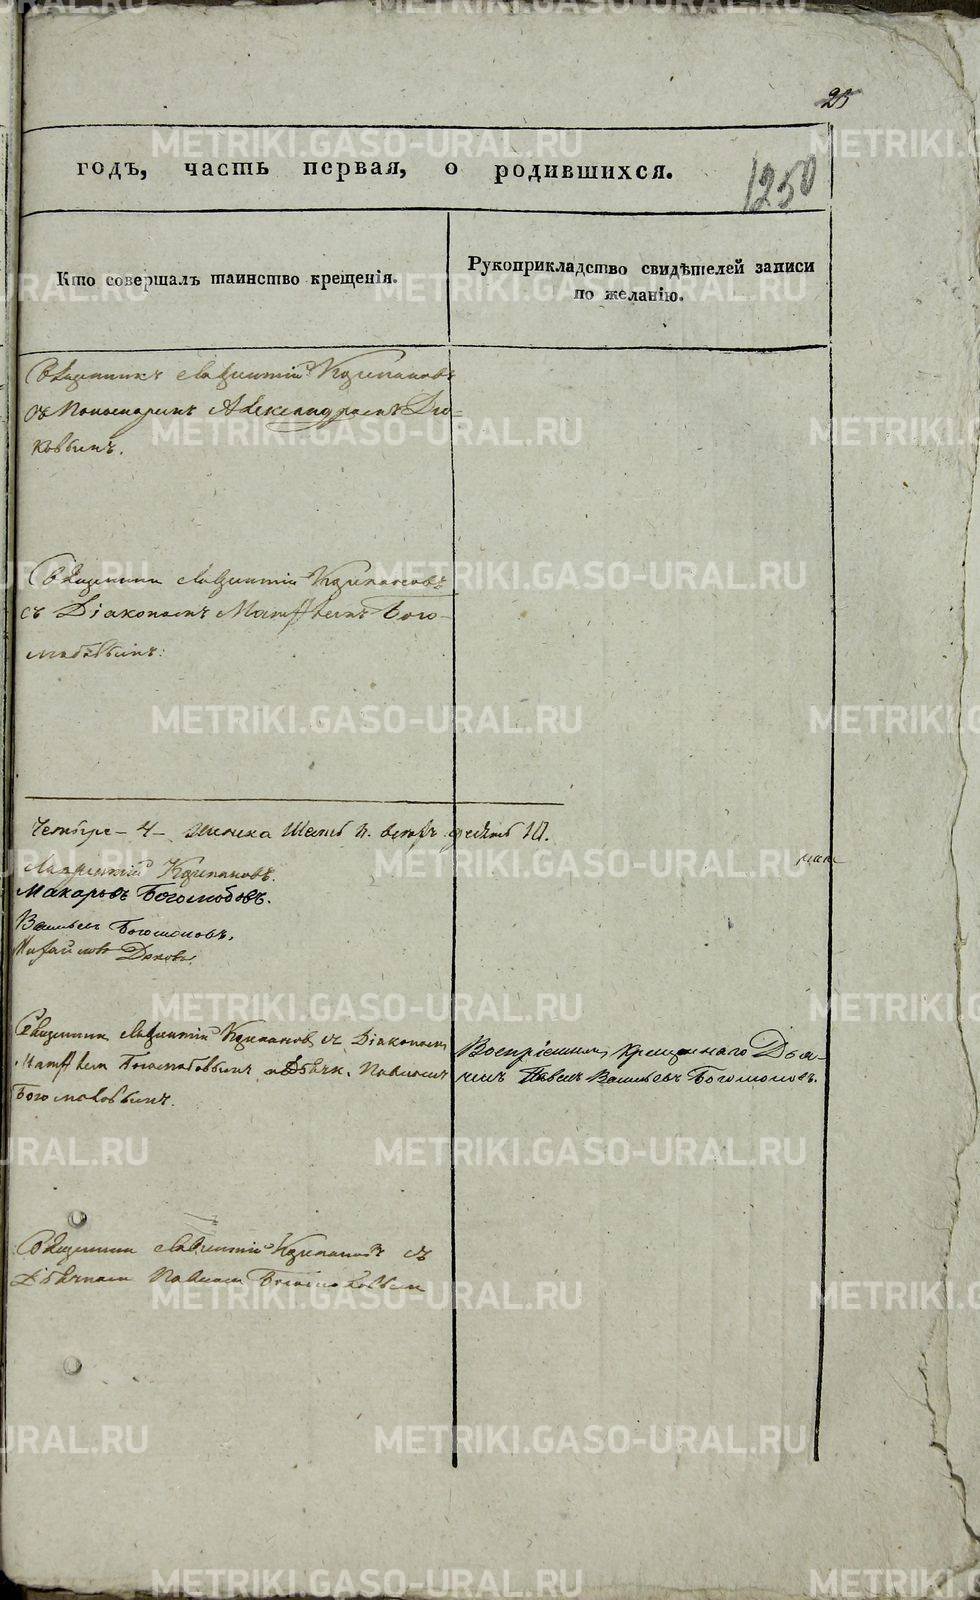 25
годъ, часть первая, о родившихся.
1250
Кто совершалъ таинство крещенія.
Рукоприкладство свидѣтелей записи
по желанію.
Священникъ Лаврентій
съ Пономаремъ Александромъ Дьо-
ковымъ.
Священникъ Лаврентій
съ Діакономъ Матѳѣемъ Бого-
любовымъ:
Четыре - 4 - женска десять 10.
Лаврентій
Макаровъ Боголюбовъ.
Богомоловъ.
Михайловъ
Священникъ Лаврентій съ Діакономъ
Матѳѣемъ Боголюбовымъ и Дьячк. Павломъ
Богомоловымъ.
Воспріемникъ крещеннаго Дья-
чекъ Павелъ Васильевъ Богомоловъ.
Священникъ Лаврентій съ
Дьячкомъ Павломъ Богомоловымъ
METRIKI.GASO-URAL.RU